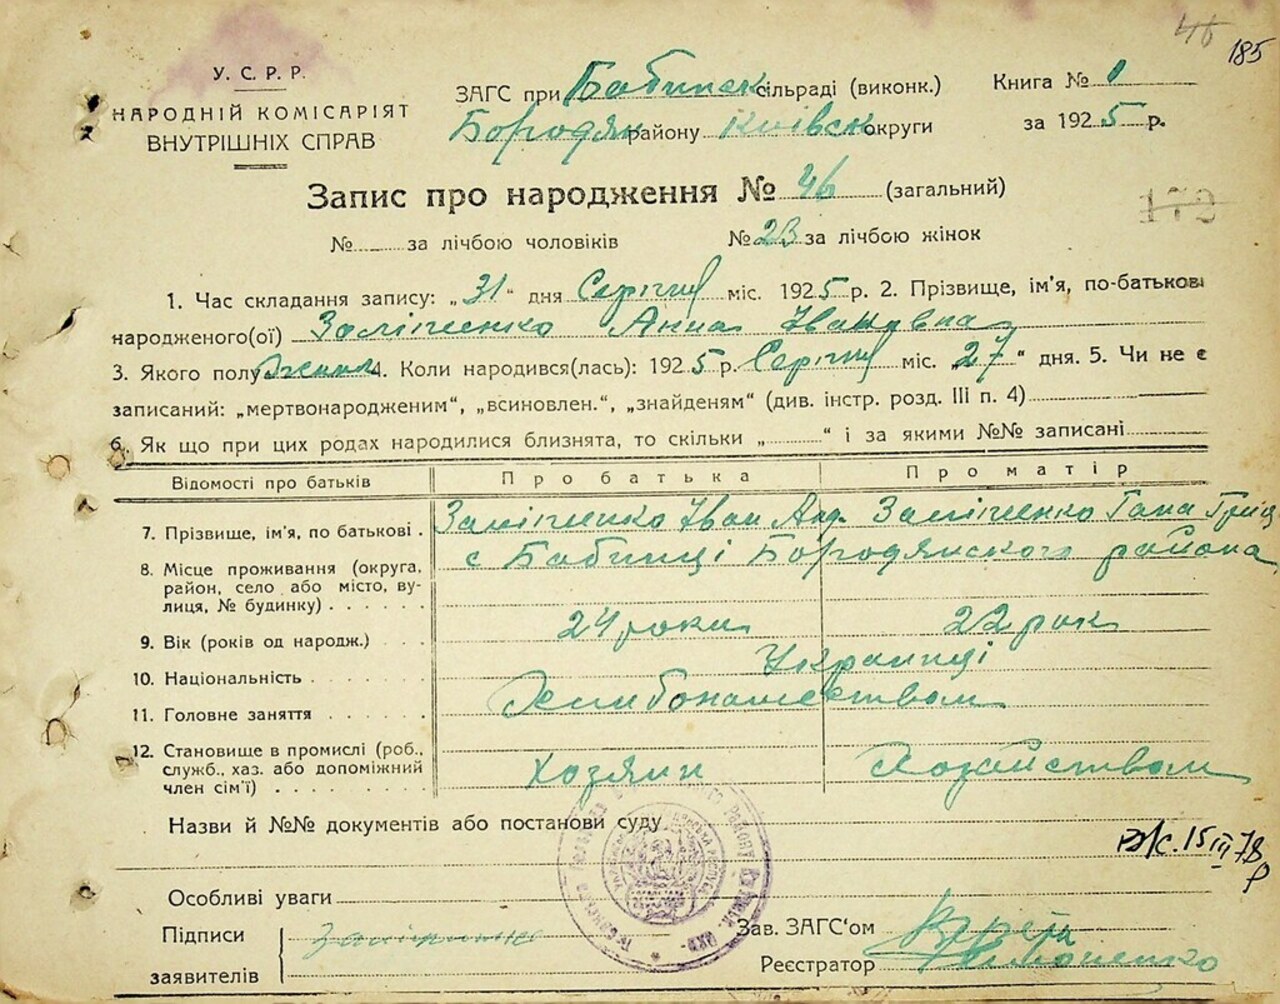 46 185
У. С. Р. Р.
НАРОДНІЙ КОМІСАРІЯТ
ВНУТРІШНІХ СПРАВ
ЗАГС при Бабинск сільраді (виконк.) Книга № 1
Бородян району Київск округи за 1925 р.
Запис про народження № 46 (загальний)
179
№ за лічбою чоловіків № 23 за лічбою жінок
1. Час складання запису: „31“ дня Серпня міс. 1925 р. 2. Прізвище, ім'я, по-батькові
народженого(ої) Анна Ивановна
3. Якого полу 4. Коли народився(лась): 1925 р. Серпня міс. „27“ дня. 5. Чи не є
записаний: „мертвонародженим“, „всиновлен.“, „знайденям“ (див. інстр. розд. III п. 4)
6. Як що при цих родах народилися близнята, то скільки „ “ і за якими №№ записані
Відомості про батьків Про батька Про матір
7. Прізвище, ім'я, по батькові . Іван Анд. Гана Григ
8. Місце проживання (округа, с Бабинці Бородянского района
район, село або місто, ву-
лиця, № будинку) . . . . . .
9. Вік (років од народж.) . . . 24 роки 22 рок
10. Національність . . . . . . . Украинці
11. Головне заняття . . . . . .
12. Становище в промислі (роб.,
служб., хаз. або допоміжний Хозяин Хозайством
член сім'ї) . . . . . . . . .
Назви й №№ документів або постанови суду
15 III 78
Особливі уваги
Підписи
заявителів
Зав. ЗАГС‘ом
Реєстратор